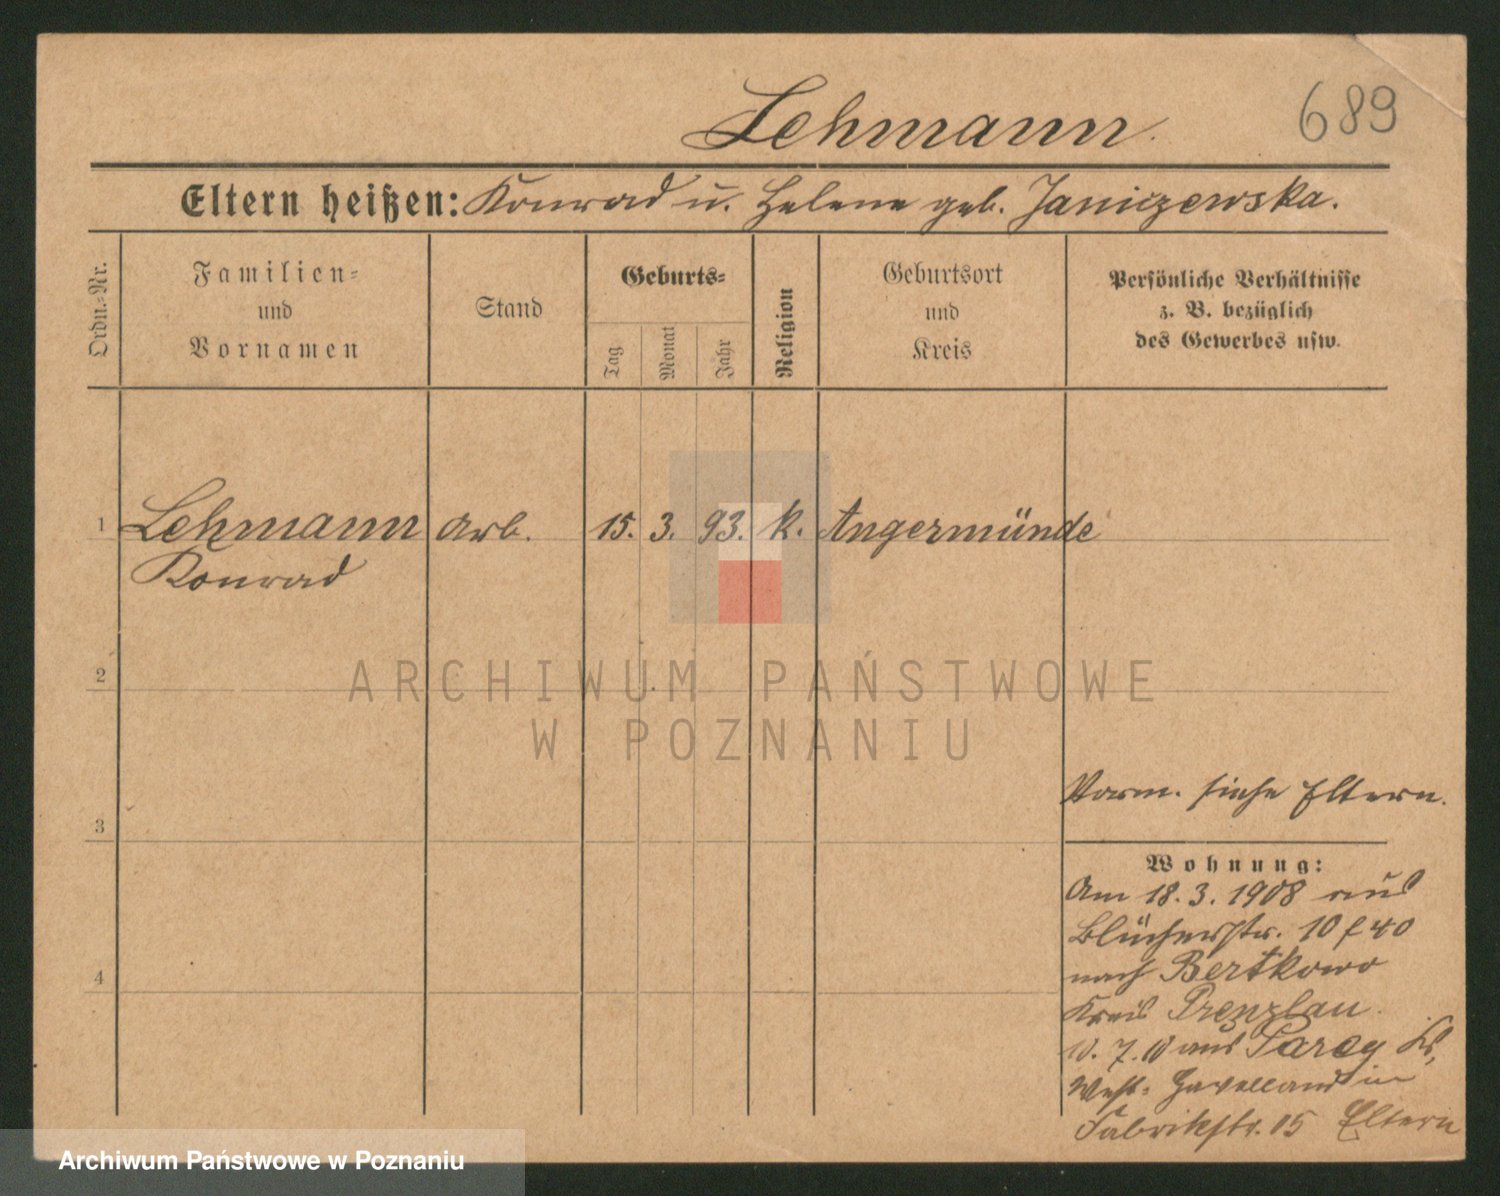 689
Lehmann.
Eltern heißen: Konrad u. Helene geb. Janiczewska.
Ordn.-Nr.
Familien-
und
Vornamen
Stand
Geburts-
Tag
Monat
Jahr
Religion
Geburtsort
und
Kreis
Persönliche Verhältnisse
z. B. bezüglich
des Gewerbes usw.
1 Lehmann Arb. 15. 3. 93. k. Angermünde
Konrad
2
3
4
Vorm. siehe Eltern.
Wohnung:
Am 18.3.1908 aus
Blücherstr. 10 f 40
nach Bertkowo
Kreis Prenzlau.
10.7.10 aus Parey Kr.
West-Havelland in
Fabrikstr. 15 Eltern
ARCHIWUM PAŃSTWOWE
W POZNANIU
Archiwum Państwowe w Poznaniu